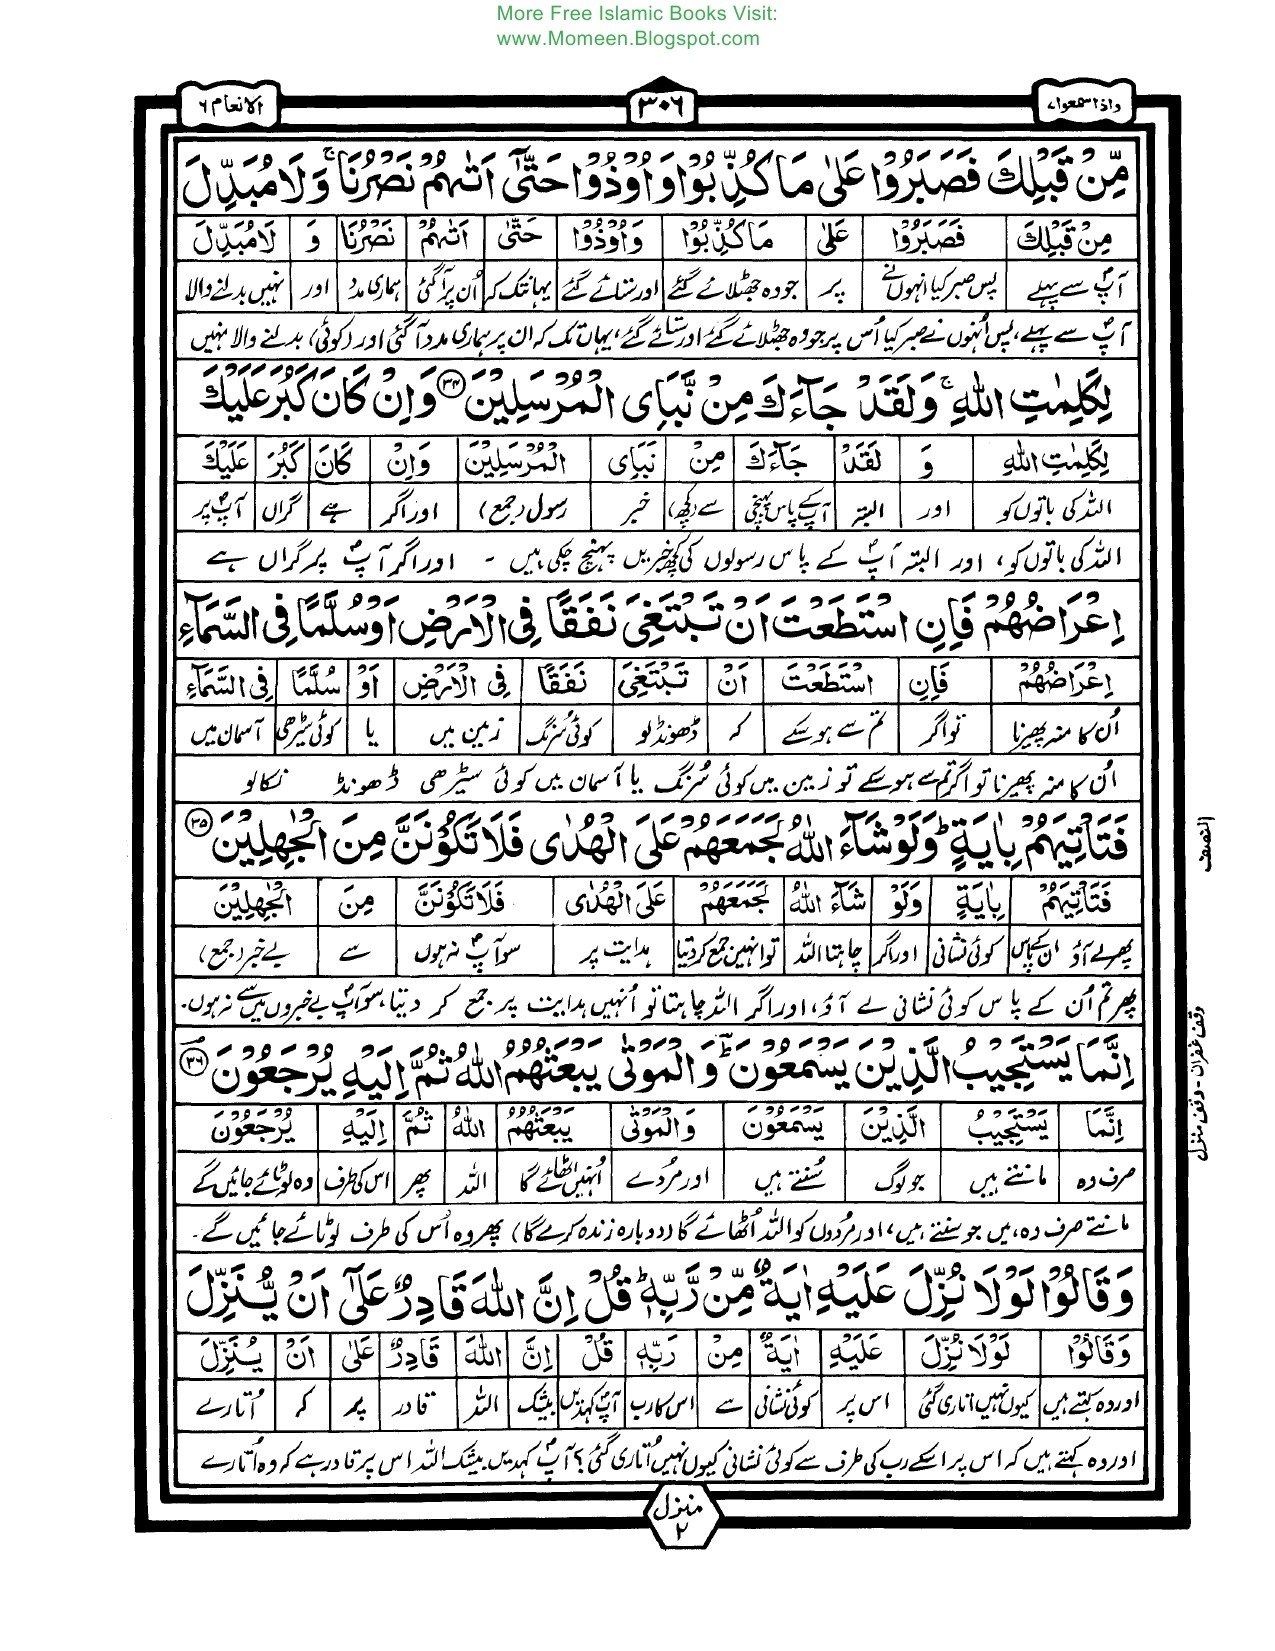 More Free Islamic Books Visit:
www.Momeen.Blogspot.com
واذا سمعوا ۷
۳۰۶
الانعام ۶
مِّنْ قَبْلِكَ فَصَبَرُوْا عَلٰى مَا كُذِّبُوْا وَاُوْذُوْا حَتّٰٓى اَتٰىهُمْ نَصْرُنَا ۚ وَلَا مُبَدِّلَ
مِنْ قَبْلِكَ فَصَبَرُوْا عَلٰى مَا كُذِّبُوْا وَاُوْذُوْا حَتّٰى اَتٰىهُمْ نَصْرُنَا وَ لَا مُبَدِّلَ
آپؐ سے پہلے پس صبر کیا انہوں نے پر جو وہ جھٹلائے گئے اور ستائے گئے یہانتک کہ اُن پر آگئی ہماری مدد اور نہیں بدلنے والا
آپؐ سے پہلے، پس اُنہوں نے صبر کیا اُس پر جو وہ جھٹلائے گئے اور ستائے گئے، یہاں تک کہ ان پر ہماری مدد آگئی اور (کوئی) بدلنے والا نہیں
لِكَلِمٰتِ اللّٰهِ ۚ وَلَقَدْ جَآءَكَ مِنْ نَّبَاِى الْمُرْسَلِيْنَ ﴿۳۴﴾ وَاِنْ كَانَ كَبُرَ عَلَيْكَ
لِكَلِمٰتِ اللّٰهِ وَ لَقَدْ جَآءَكَ مِنْ نَبَاِى الْمُرْسَلِيْنَ وَاِنْ كَانَ كَبُرَ عَلَيْكَ
اللہ کی باتوں کو اور البتہ آپؐ کے پاس پہنچی سے (کچھ) خبر رسول (جمع) اور اگر ہے گراں آپؐ پر
اللہ کی باتوں کو، اور البتہ آپؐ کے پاس رسولوں کی کچھ خبریں پہنچ چکی ہیں - اور اگر آپؐ پر گراں ہے
اِعْرَاضُهُمْ فَاِنِ اسْتَطَعْتَ اَنْ تَبْتَغِىَ نَفَقًا فِى الْاَرْضِ اَوْ سُلَّمًا فِى السَّمَآءِ
اِعْرَاضُهُمْ فَاِنِ اسْتَطَعْتَ اَنْ تَبْتَغِىَ نَفَقًا فِى الْاَرْضِ اَوْ سُلَّمًا فِى السَّمَآءِ
اُن کا منہ پھیرنا تو اگر تم سے ہو سکے کہ ڈھونڈ لو کوئی سُرنگ زمین میں یا کوئی سیڑھی آسمان میں
اُن کا منہ پھیرنا تو اگر تم سے ہو سکے تو زمین میں کوئی سُرنگ یا آسمان میں کوئی سیڑھی ڈھونڈ نکالو
فَتَاْتِيَهُمْ بِاٰيَةٍ ؕ وَلَوْ شَآءَ اللّٰهُ لَجَمَعَهُمْ عَلَى الْهُدٰى فَلَا تَكُوْنَنَّ مِنَ الْجٰهِلِيْنَ ﴿۳۵﴾
النصف
فَتَاْتِيَهُمْ بِاٰيَةٍ وَلَوْ شَآءَ اللّٰهُ لَجَمَعَهُمْ عَلَى الْهُدٰى فَلَا تَكُوْنَنَّ مِنَ الْجٰهِلِيْنَ
پھر لے آؤ ان کے پاس کوئی نشانی اور اگر چاہتا اللہ تو انہیں جمع کر دیتا ہدایت پر سو آپؐ نہ ہوں سے بے خبر (جمع)
پھر تم اُن کے پاس کوئی نشانی لے آؤ، اور اگر اللہ چاہتا تو اُنہیں ہدایت پر جمع کر دیتا، سو آپؐ بے خبروں میں سے نہ ہوں۔
اِنَّمَا يَسْتَجِيْبُ الَّذِيْنَ يَسْمَعُوْنَ ؕ وَالْمَوْتٰى يَبْعَثُهُمُ اللّٰهُ ثُمَّ اِلَيْهِ يُرْجَعُوْنَ ﴿۳۶﴾
وقف غفران - وقف منزل
اِنَّمَا يَسْتَجِيْبُ الَّذِيْنَ يَسْمَعُوْنَ وَالْمَوْتٰى يَبْعَثُهُمُ اللّٰهُ ثُمَّ اِلَيْهِ يُرْجَعُوْنَ
صرف وہ مانتے ہیں جو لوگ سُنتے ہیں اور مُردے اُنہیں اٹھائے گا اللہ پھر اس کی طرف وہ لوٹائے جائیں گے
مانتے صرف وہ ہیں جو سنتے ہیں، اور مُردوں کو اللہ اُٹھائے گا (دوبارہ زندہ کرے گا) پھر وہ اُس کی طرف لوٹائے جائیں گے۔
وَقَالُوْا لَوْلَا نُزِّلَ عَلَيْهِ اٰيَةٌ مِّنْ رَّبِّهٖ ؕ قُلْ اِنَّ اللّٰهَ قَادِرٌ عَلٰٓى اَنْ يُّنَزِّلَ
وَقَالُوْا لَوْلَا نُزِّلَ عَلَيْهِ اٰيَةٌ مِنْ رَبِّهٖ قُلْ اِنَّ اللّٰهَ قَادِرٌ عَلٰى اَنْ يُنَزِّلَ
اور وہ کہتے ہیں کیوں نہیں اتاری گئی اس پر کوئی نشانی سے اس کا رب آپؐ کہدیں بیشک اللہ قادر پر کہ اُتارے
اور وہ کہتے ہیں کہ اس پر اسکے رب کی طرف سے کوئی نشانی کیوں نہیں اُتاری گئی؟ آپؐ کہدیں بیشک اللہ اس پر قادر ہے کہ وہ اُتارے
منزل
۲